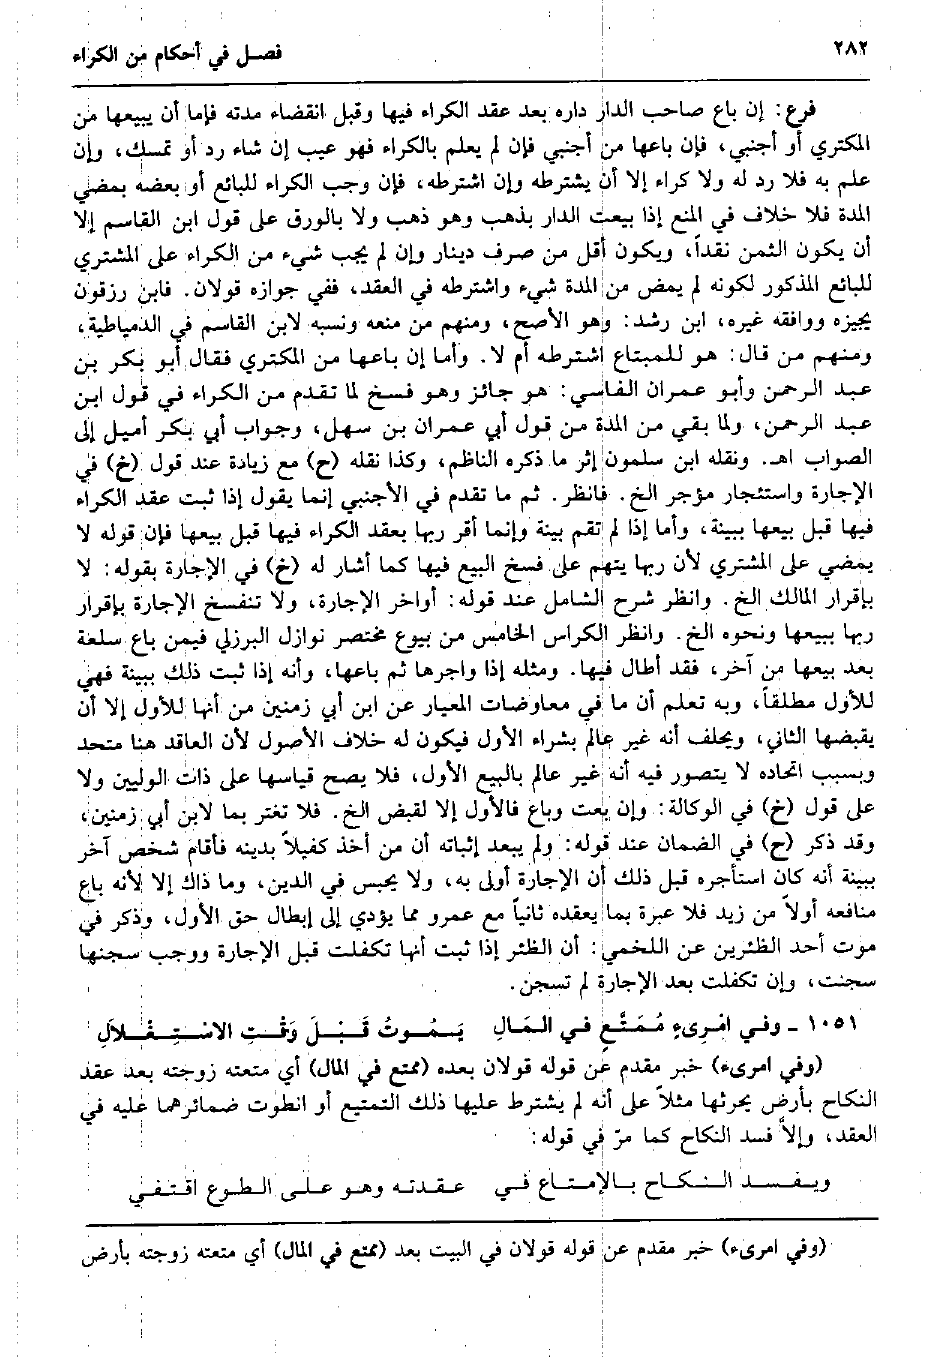 ٢٨٢
فصل في أحكام من الكراء
فرع: إن باع صاحب الدار داره بعد عقد الكراء فيها وقبل انقضاء مدته فإما أن يبيعها من
المكتري أو أجنبي، فإن باعها من أجنبي فإن لم يعلم بالكراء فهو عيب إن شاء رد أو تمسك، وإن
علم به فلا رد له ولا كراء إلا أن يشترطه وإن اشترطه، فإن وجب الكراء للبائع أو بعضه بمضي
المدة فلا خلاف في المنع إذا بيعت الدار بذهب وهو ذهب ولا بالورق على قول ابن القاسم إلا
أن يكون الثمن نقداً، ويكون أقل من صرف دينار وإن لم يجب شيء من الكراء على المشتري
للبائع المذكور لكونه لم يمض من المدة شيء واشترطه في العقد، ففي جوازه قولان. فابن رزقون
يجيزه ووافقه غيره، ابن رشد: وهو الأصح، ومنهم من منعه ونسبه لابن القاسم في الدمياطية،
ومنهم من قال: هو للمبتاع اشترطه أم لا. وأما إن باعها من المكتري فقال أبو بكر بن
عبد الرحمن وأبو عمران الفاسي: هو جائز وهو فسخ لما تقدم من الكراء في قول ابن
عبد الرحمن، ولما بقي من المدة من قول أبي عمران بن سهل، وجواب أبي بكر أميل إلى
الصواب اهـ. ونقله ابن سلمون إثر ما ذكره الناظم، وكذا نقله (ح) مع زيادة عند قول (خ) في
الإجارة واستئجار مؤجر الخ. فانظر. ثم ما تقدم في الأجنبي إنما يقول إذا ثبت عقد الكراء
فيها قبل بيعها ببينة، وأما إذا لم تقم بينة وإنما أقر ربها بعقد الكراء فيها قبل بيعها فإن قوله لا
يمضي على المشتري لأن ربها يتهم على فسخ البيع فيها كما أشار له (خ) في الإجارة بقوله: لا
بإقرار المالك الخ. وانظر شرح الشامل عند قوله: أواخر الإجارة، ولا تنفسخ الإجارة بإقرار
ربها ببيعها ونحوه الخ. وانظر الكراس الخامس من بيوع مختصر نوازل البرزلي فيمن باع سلعة
بعد بيعها من آخر، فقد أطال فيها. ومثله إذا واجرها ثم باعها، وأنه إذا ثبت ذلك ببينة فهي
للأول مطلقاً، وبه تعلم أن ما في معاوضات المعيار عن ابن أبي زمنين من أنها للأول إلا أن
يقبضها الثاني، ويحلف أنه غير عالم بشراء الأول فيكون له خلاف الأصول لأن العاقد هنا متحد
وبسبب اتحاده لا يتصور فيه أنه غير عالم بالبيع الأول، فلا يصح قياسها على ذات الوليين ولا
على قول (خ) في الوكالة: وإن بعت وباع فالأول إلا لقبض الخ. فلا تغتر بما لابن أبي زمنين،
وقد ذكر (ح) في الضمان عند قوله: ولم يبعد إثباته أن من أخذ كفيلاً بدينه فأقام شخص آخر
ببينة أنه كان استأجره قبل ذلك أن الإجارة أولى به، ولا يحبس في الدين، وما ذاك إلا لأنه باع
منافعه أولاً من زيد فلا عبرة بما يعقده ثانياً مع عمرو مما يؤدي إلى إبطال حق الأول، وذكر في
موت أحد الظئرين عن اللخمي: أن الظئر إذا ثبت أنها تكفلت قبل الإجارة ووجب سجنها
سجنت، وإن تكفلت بعد الإجارة لم تسجن.
١٠٥١ - وفي امْرِىءٍ مُمَتَّعٍ في المَالِ يَمُوتُ قَبْلَ وَقْتِ الاسْتِغْلاَلِ
(وفي امرىء) خبر مقدم عن قوله قولان بعده (ممتع في المال) أي متعته زوجته بعد عقد
النكاح بأرض يحرثها مثلاً على أنه لم يشترط عليها ذلك التمتيع أو انطوت ضمائرهما عليه في
العقد، وإلاَّ فسد النكاح كما مرّ في قوله:
ويفسد النكاح بالإمتاع في عقدته وهو على الطوع اقتفي
(وفي امرىء) خبر مقدم عن قوله قولان في البيت بعد (ممتع في المال) أي متعته زوجته بأرض